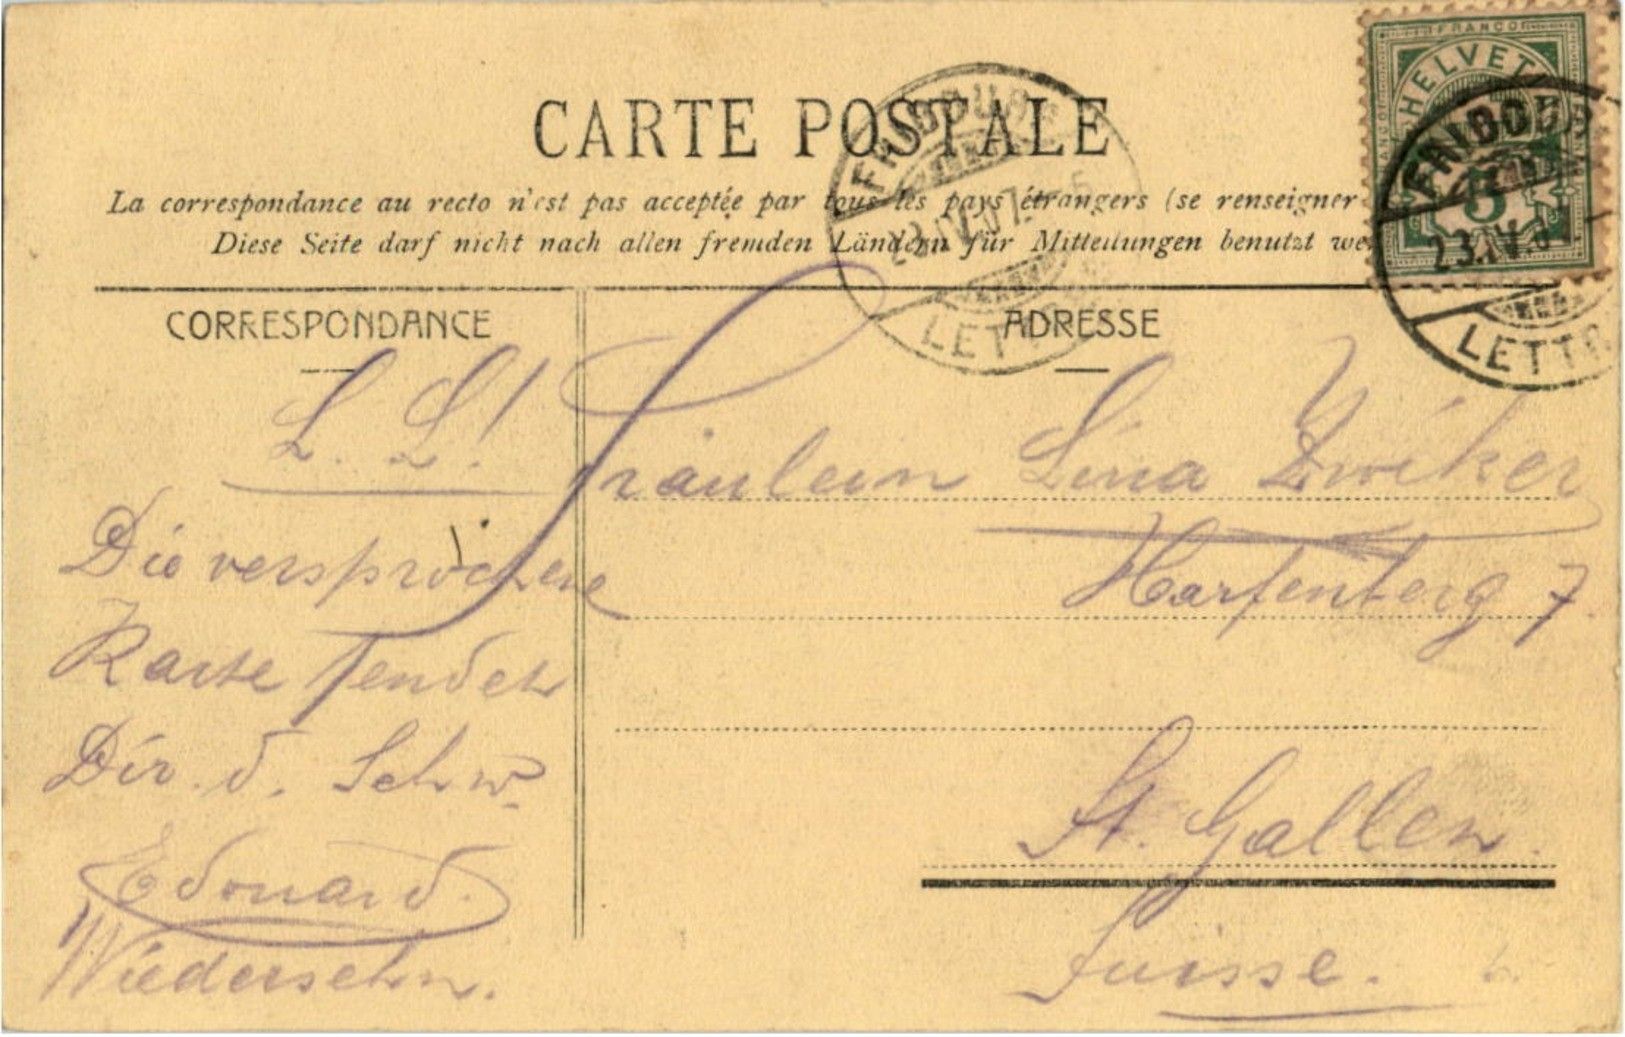 CARTE POSTALE
La correspondance au recto n'est pas acceptée par tous les pays étrangers (se renseigner
Diese Seite darf nicht nach allen fremden Ländern für Mitteilungen benutzt we
FRANCO
HELVET
5
FRIBOUR
23.IV.07
LETTR
FRIBOURG
23.IV.07. 5
LETT
CORRESPONDANCE
L. L!
Die versprochene
Karte sendet
Dir. d. Schw.
Edouard.
Wiedersehn.
ADRESSE
Fräulein Lina Zwiker
Harfenberg 7
St. Gallen.
Suisse.